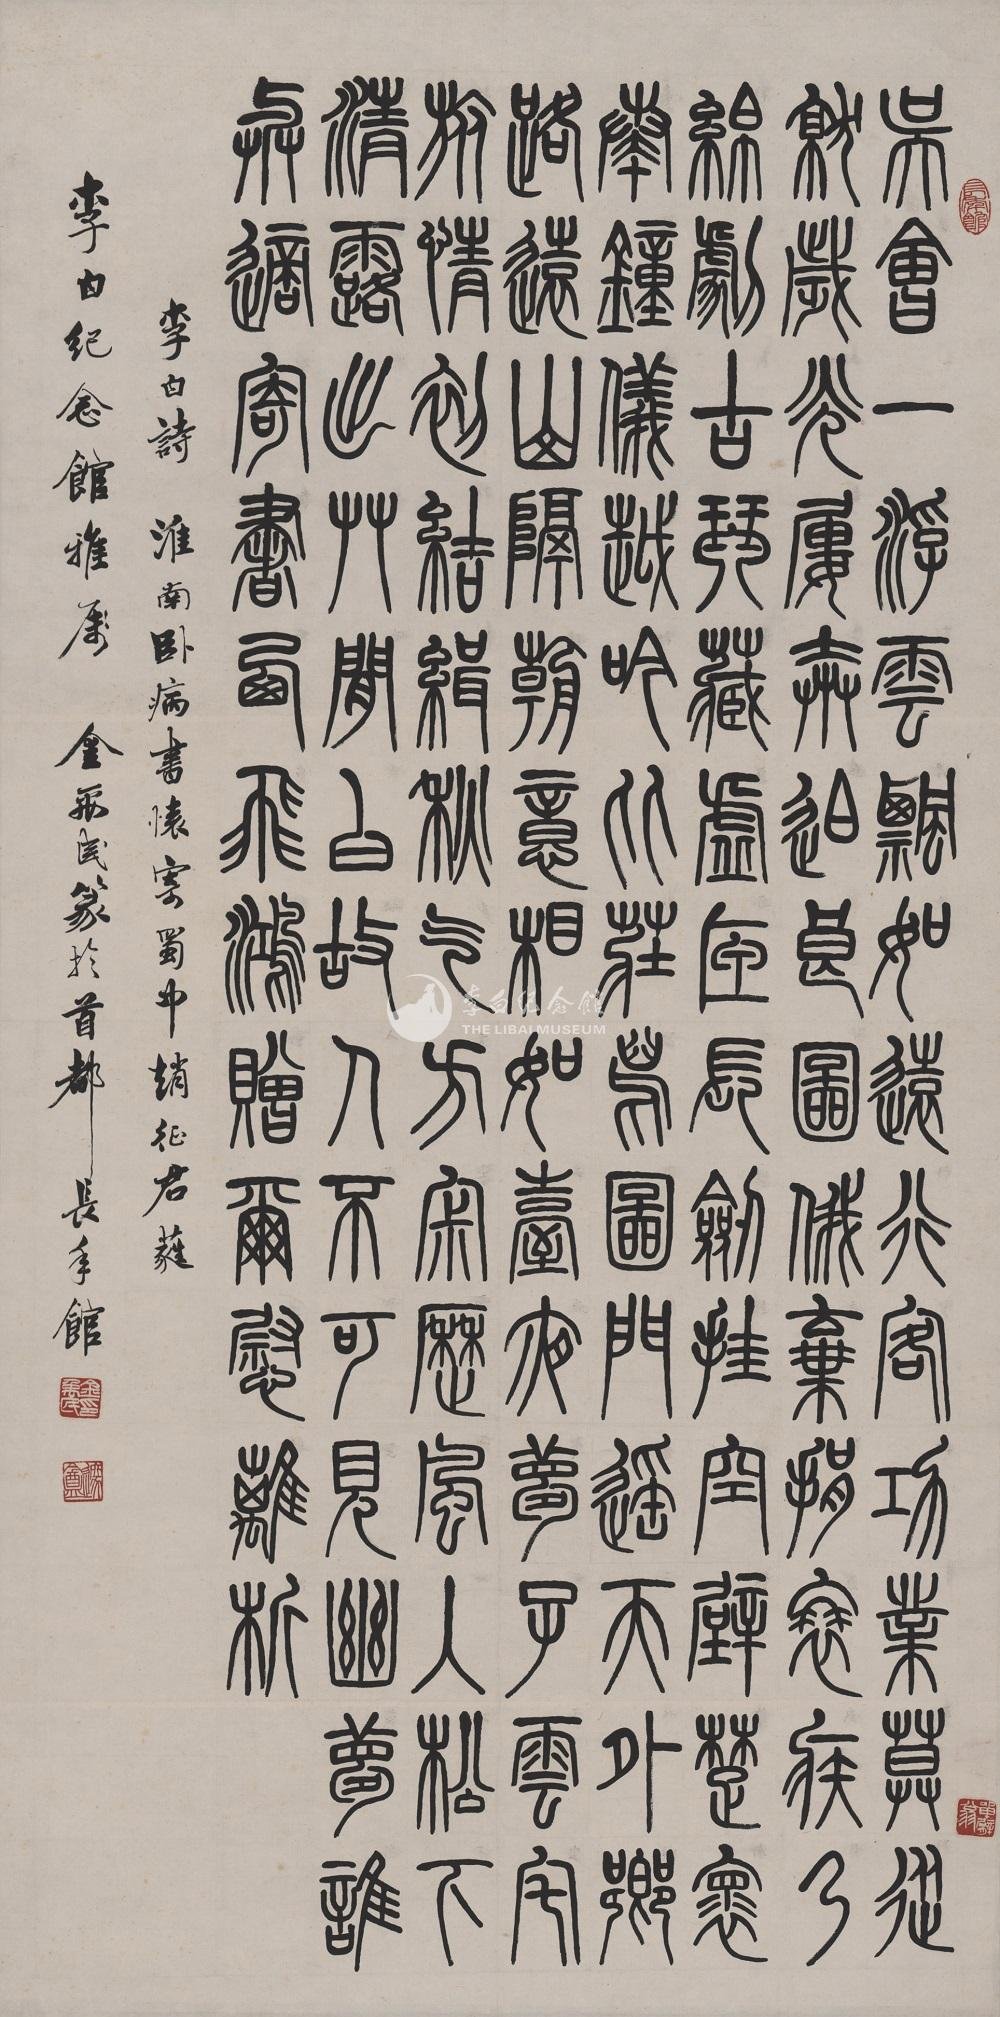 吳會一浮雲飄如遠行客功業莫從
就歲光屢奔迫良圖俄棄捐衰疾乃
綿劇古琴藏虛匣長劍挂空壁楚懷
奏鐘儀越吟比莊舄圖門遥天外鄉
路遠山隔朝意相如臺夜夢子雲宅
旅情初結緝秋气方宋歷風入松下
清露出艸間白故人不可見幽夢誰
與適寄書西飛鴻贈爾慰離析
李白詩 淮南卧病書懷寄蜀中趙征君蕤
李白紀念館雅屬 金禹民篆於首都長年館
李白纪念館
THE LIBAI MUSEUM